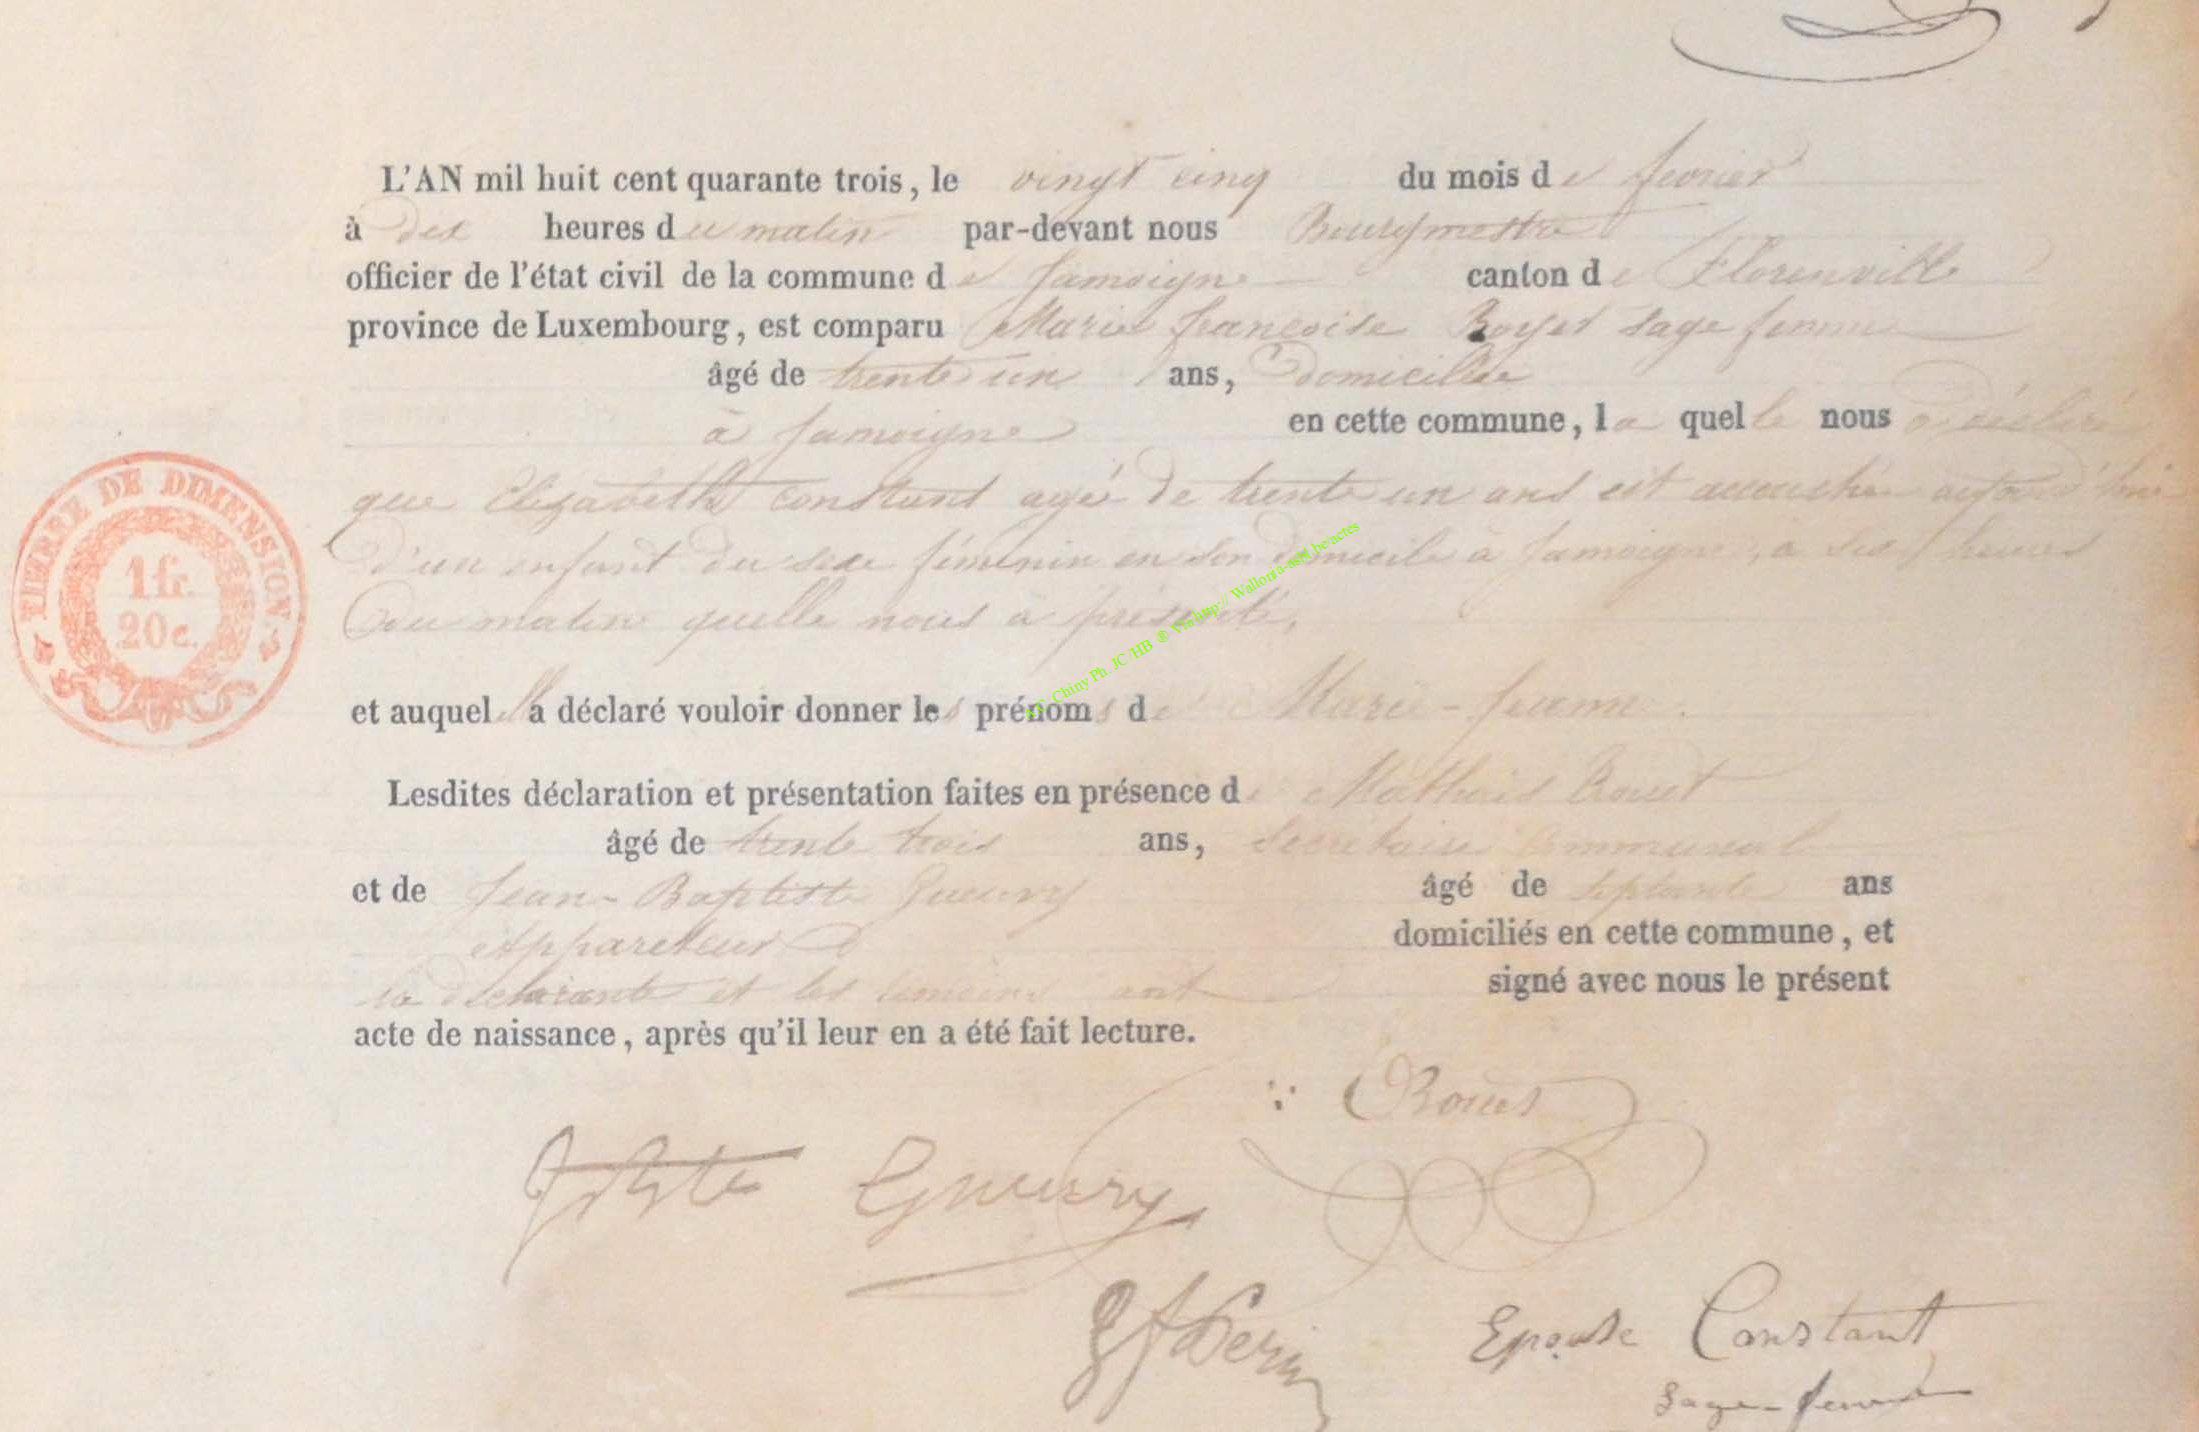 L'AN mil huit cent quarante trois, le vingt cinq du mois de fevrier
à dix heures du matin par-devant nous Bourgmestre
officier de l'état civil de la commune de Jamoigne canton de Florenville
province de Luxembourg, est comparu Marie françoise sage femme
âgé de trente un ans, domiciliée
à Jamoigne en cette commune, la quelle nous a déclaré
que Elizabeth Constant agé de trente un ans est accouchée aujourd'hui
d'un enfant du sexe féminin en son domicile à Jamoigne, a six heures
du matin quelle nous à présenté,
et auquel elle a déclaré vouloir donner les prénoms de Marie-Jeanne.
Lesdites déclaration et présentation faites en présence de Mathias
âgé de trente trois ans, Secretaire Communal
et de Jean-Baptiste Gueury âgé de septante ans
Appariteur domiciliés en cette commune, et
la déclarante et les temoins ont signé avec nous le présent
acte de naissance, après qu'il leur en a été fait lecture.
Gueury
Epouse Constant
Sage-femme
TIMBRE DE DIMENSION.
1 fr.
20 c.
A.C. Chiny Ph. JC/HB ® Via http:// Wallonia-asbl.be/actes